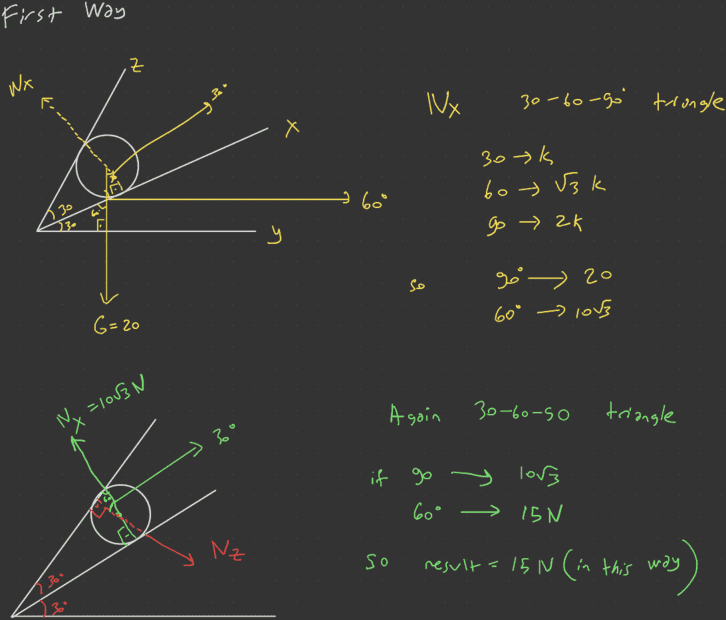 First Way
Z
Nx
30°
X
30
30
60
60°
y
G=20
Nx 30-60-90° triangle
30 → k
60 → √3 k
90 → 2k
so 90° → 20
60° → 10√3
Nx=10√3 N
30°
Nz
30°
30°
Again 30-60-90 triangle
if 90 → 10√3
60° → 15N
so result = 15 N (in this way)